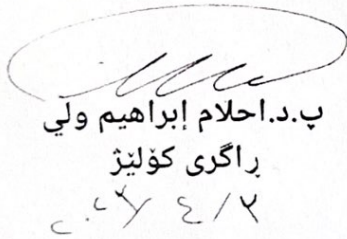 پ.د.احلام إبراهيم ولي
ڕاگری کۆلێژ